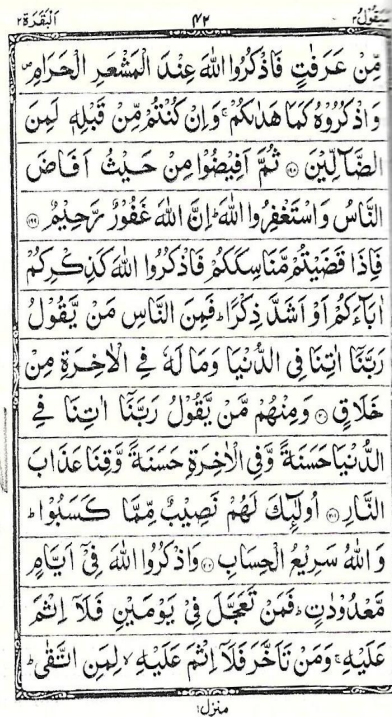 سَيَقُولُ ٢ ٤٢ اَلْبَقَرَة ٢
مِّنْ عَرَفٰتٍ فَاذْكُرُوا اللّٰهَ عِنْدَ الْمَشْعَرِ الْحَرَامِ ۖ
وَاذْكُرُوْهُ كَمَا هَدٰىكُمْ ۚ وَاِنْ كُنْتُمْ مِّنْ قَبْلِهٖ لَمِنَ
الضَّآلِّيْنَ ۝١٩٨ ثُمَّ اَفِيْضُوْا مِنْ حَيْثُ اَفَاضَ
النَّاسُ وَاسْتَغْفِرُوا اللّٰهَ ؕ اِنَّ اللّٰهَ غَفُوْرٌ رَّحِيْمٌ ۝١٩٩
فَاِذَا قَضَيْتُمْ مَّنَاسِكَكُمْ فَاذْكُرُوا اللّٰهَ كَذِكْرِكُمْ
اٰبَآءَكُمْ اَوْ اَشَدَّ ذِكْرًا ؕ فَمِنَ النَّاسِ مَنْ يَّقُوْلُ
رَبَّنَآ اٰتِنَا فِى الدُّنْيَا وَمَا لَهٗ فِى الْاٰخِرَةِ مِنْ
خَلَاقٍ ۝٢٠٠ وَمِنْهُمْ مَّنْ يَّقُوْلُ رَبَّنَآ اٰتِنَا فِى
الدُّنْيَا حَسَنَةً وَّفِى الْاٰخِرَةِ حَسَنَةً وَّقِنَا عَذَابَ
النَّارِ ۝٢٠١ اُولٰٓئِكَ لَهُمْ نَصِيْبٌ مِّمَّا كَسَبُوْا ؕ
وَاللّٰهُ سَرِيْعُ الْحِسَابِ ۝٢٠٢ وَاذْكُرُوا اللّٰهَ فِىْٓ اَيَّامٍ
مَّعْدُوْدٰتٍ ؕ فَمَنْ تَعَجَّلَ فِىْ يَوْمَيْنِ فَلَآ اِثْمَ
عَلَيْهِ ۚ وَمَنْ تَاَخَّرَ فَلَآ اِثْمَ عَلَيْهِ ۙ لِمَنِ اتَّقٰى ؕ
منزل ١